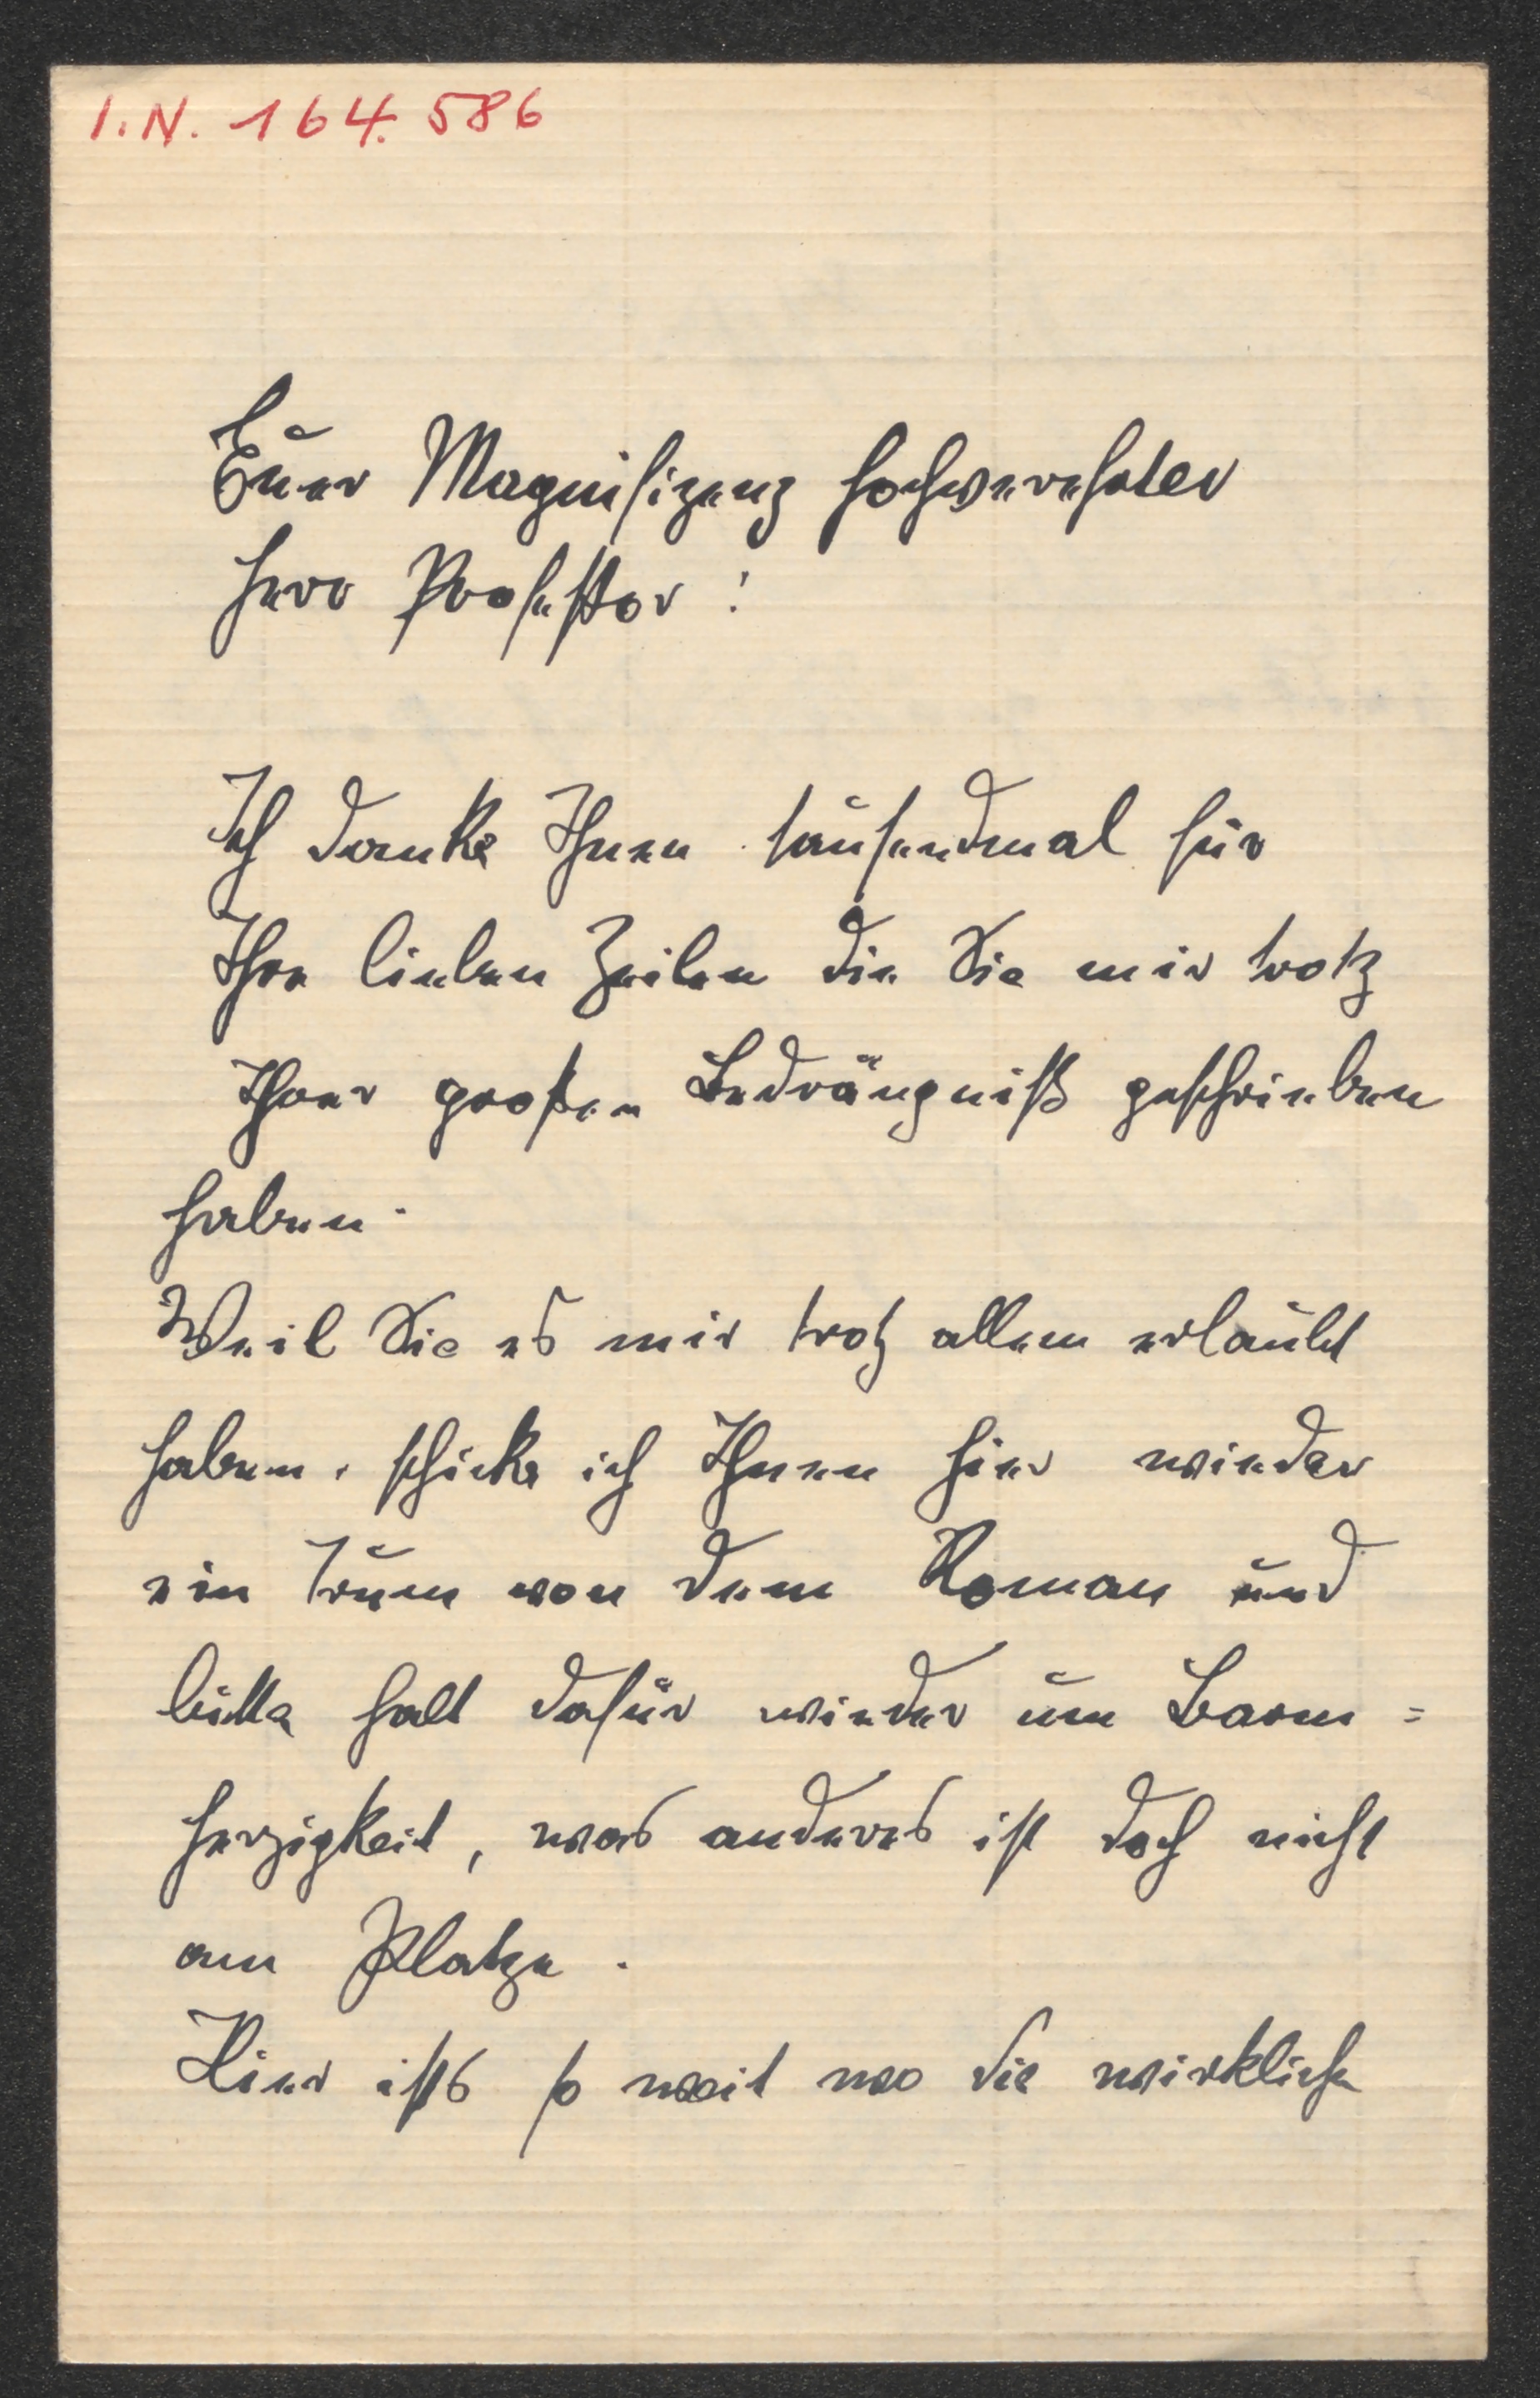 I.N. 164.586
Euer Magnifizenz hochverehrter
Herr Professor!
Ich danke Ihnen tausendmal für
Ihre lieben Zeilen die Sie mir trotz
Ihrer großen Bedrängniß geschrieben
haben.
Weil Sie es mir trotz allem erlaubt
haben, schicke ich Ihnen hier wieder
ein Trum von dem Roman und
bitte halt dafür wieder um Barm=
herzigkeit, was anderes ist doch nicht
am Platze.
Hier ists so weit wo die wirkliche